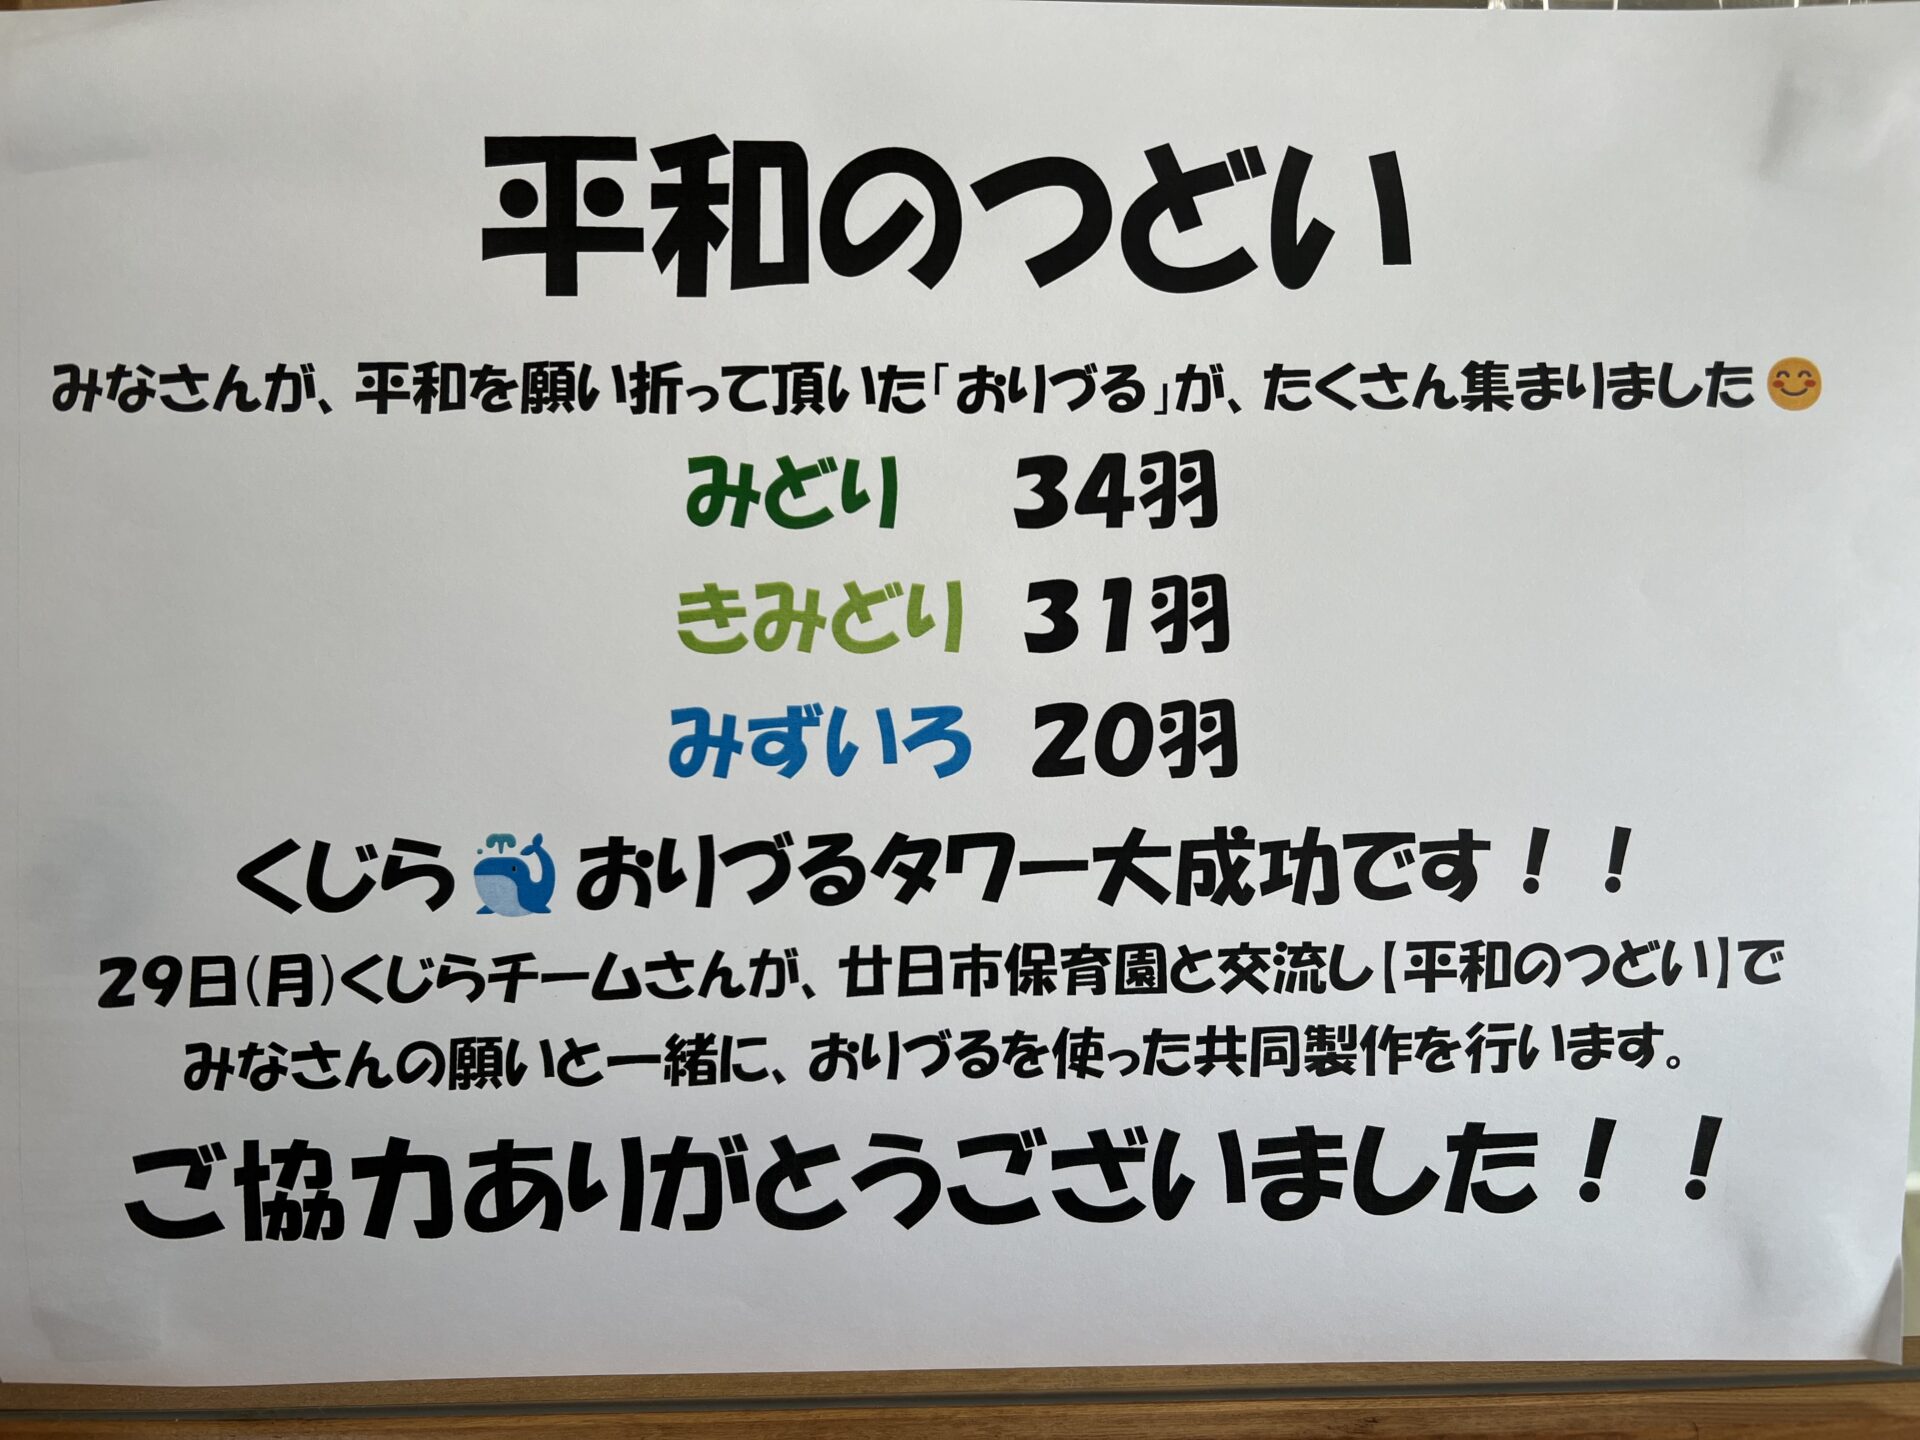 平和のつどい
みなさんが、平和を願い折って頂いた「おりづる」が、たくさん集まりました😊
みどり 34羽
きみどり 31羽
みずいろ 20羽
くじら🐳おりづるタワー大成功です！！
29日(月)くじらチームさんが、廿日市保育園と交流し【平和のつどい】で
みなさんの願いと一緒に、おりづるを使った共同製作を行います。
ご協力ありがとうございました！！